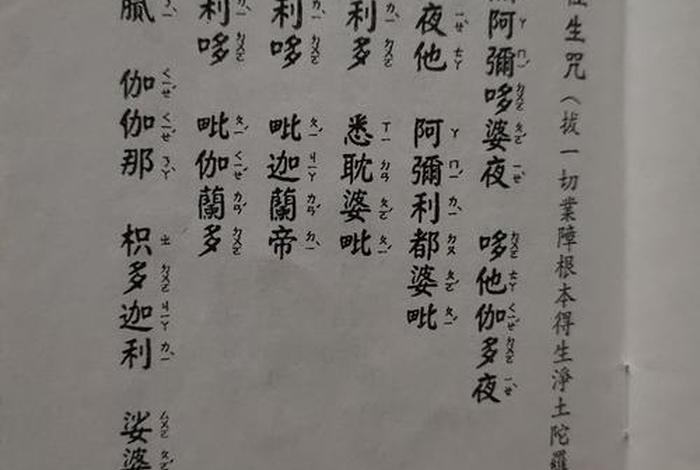 往生咒（拔一切業障根本得生淨土陀羅
阿彌哆婆夜 哆他伽多夜
夜他 阿彌利都婆毗
利多 悉耽婆毗
利哆 毗迦蘭帝
利哆 毗伽蘭多
膩 伽伽那 枳多迦利 娑婆